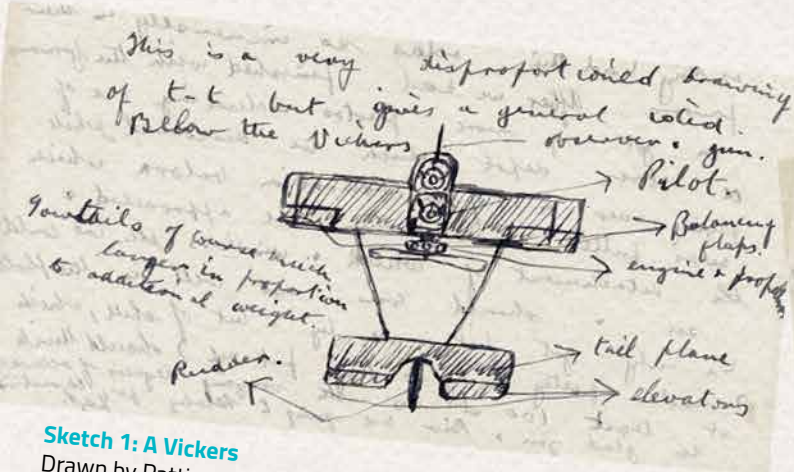 This is a very disproportioned drawing
of t-t but gives a general
Bellow the Vickers
observer & gun.
Pilot.
Balancing
flaps.
engine &
of course much
larger in proportion
to additional weight.
tail plane
Rudder.
elevators
Sketch 1: A Vickers
Drawn by